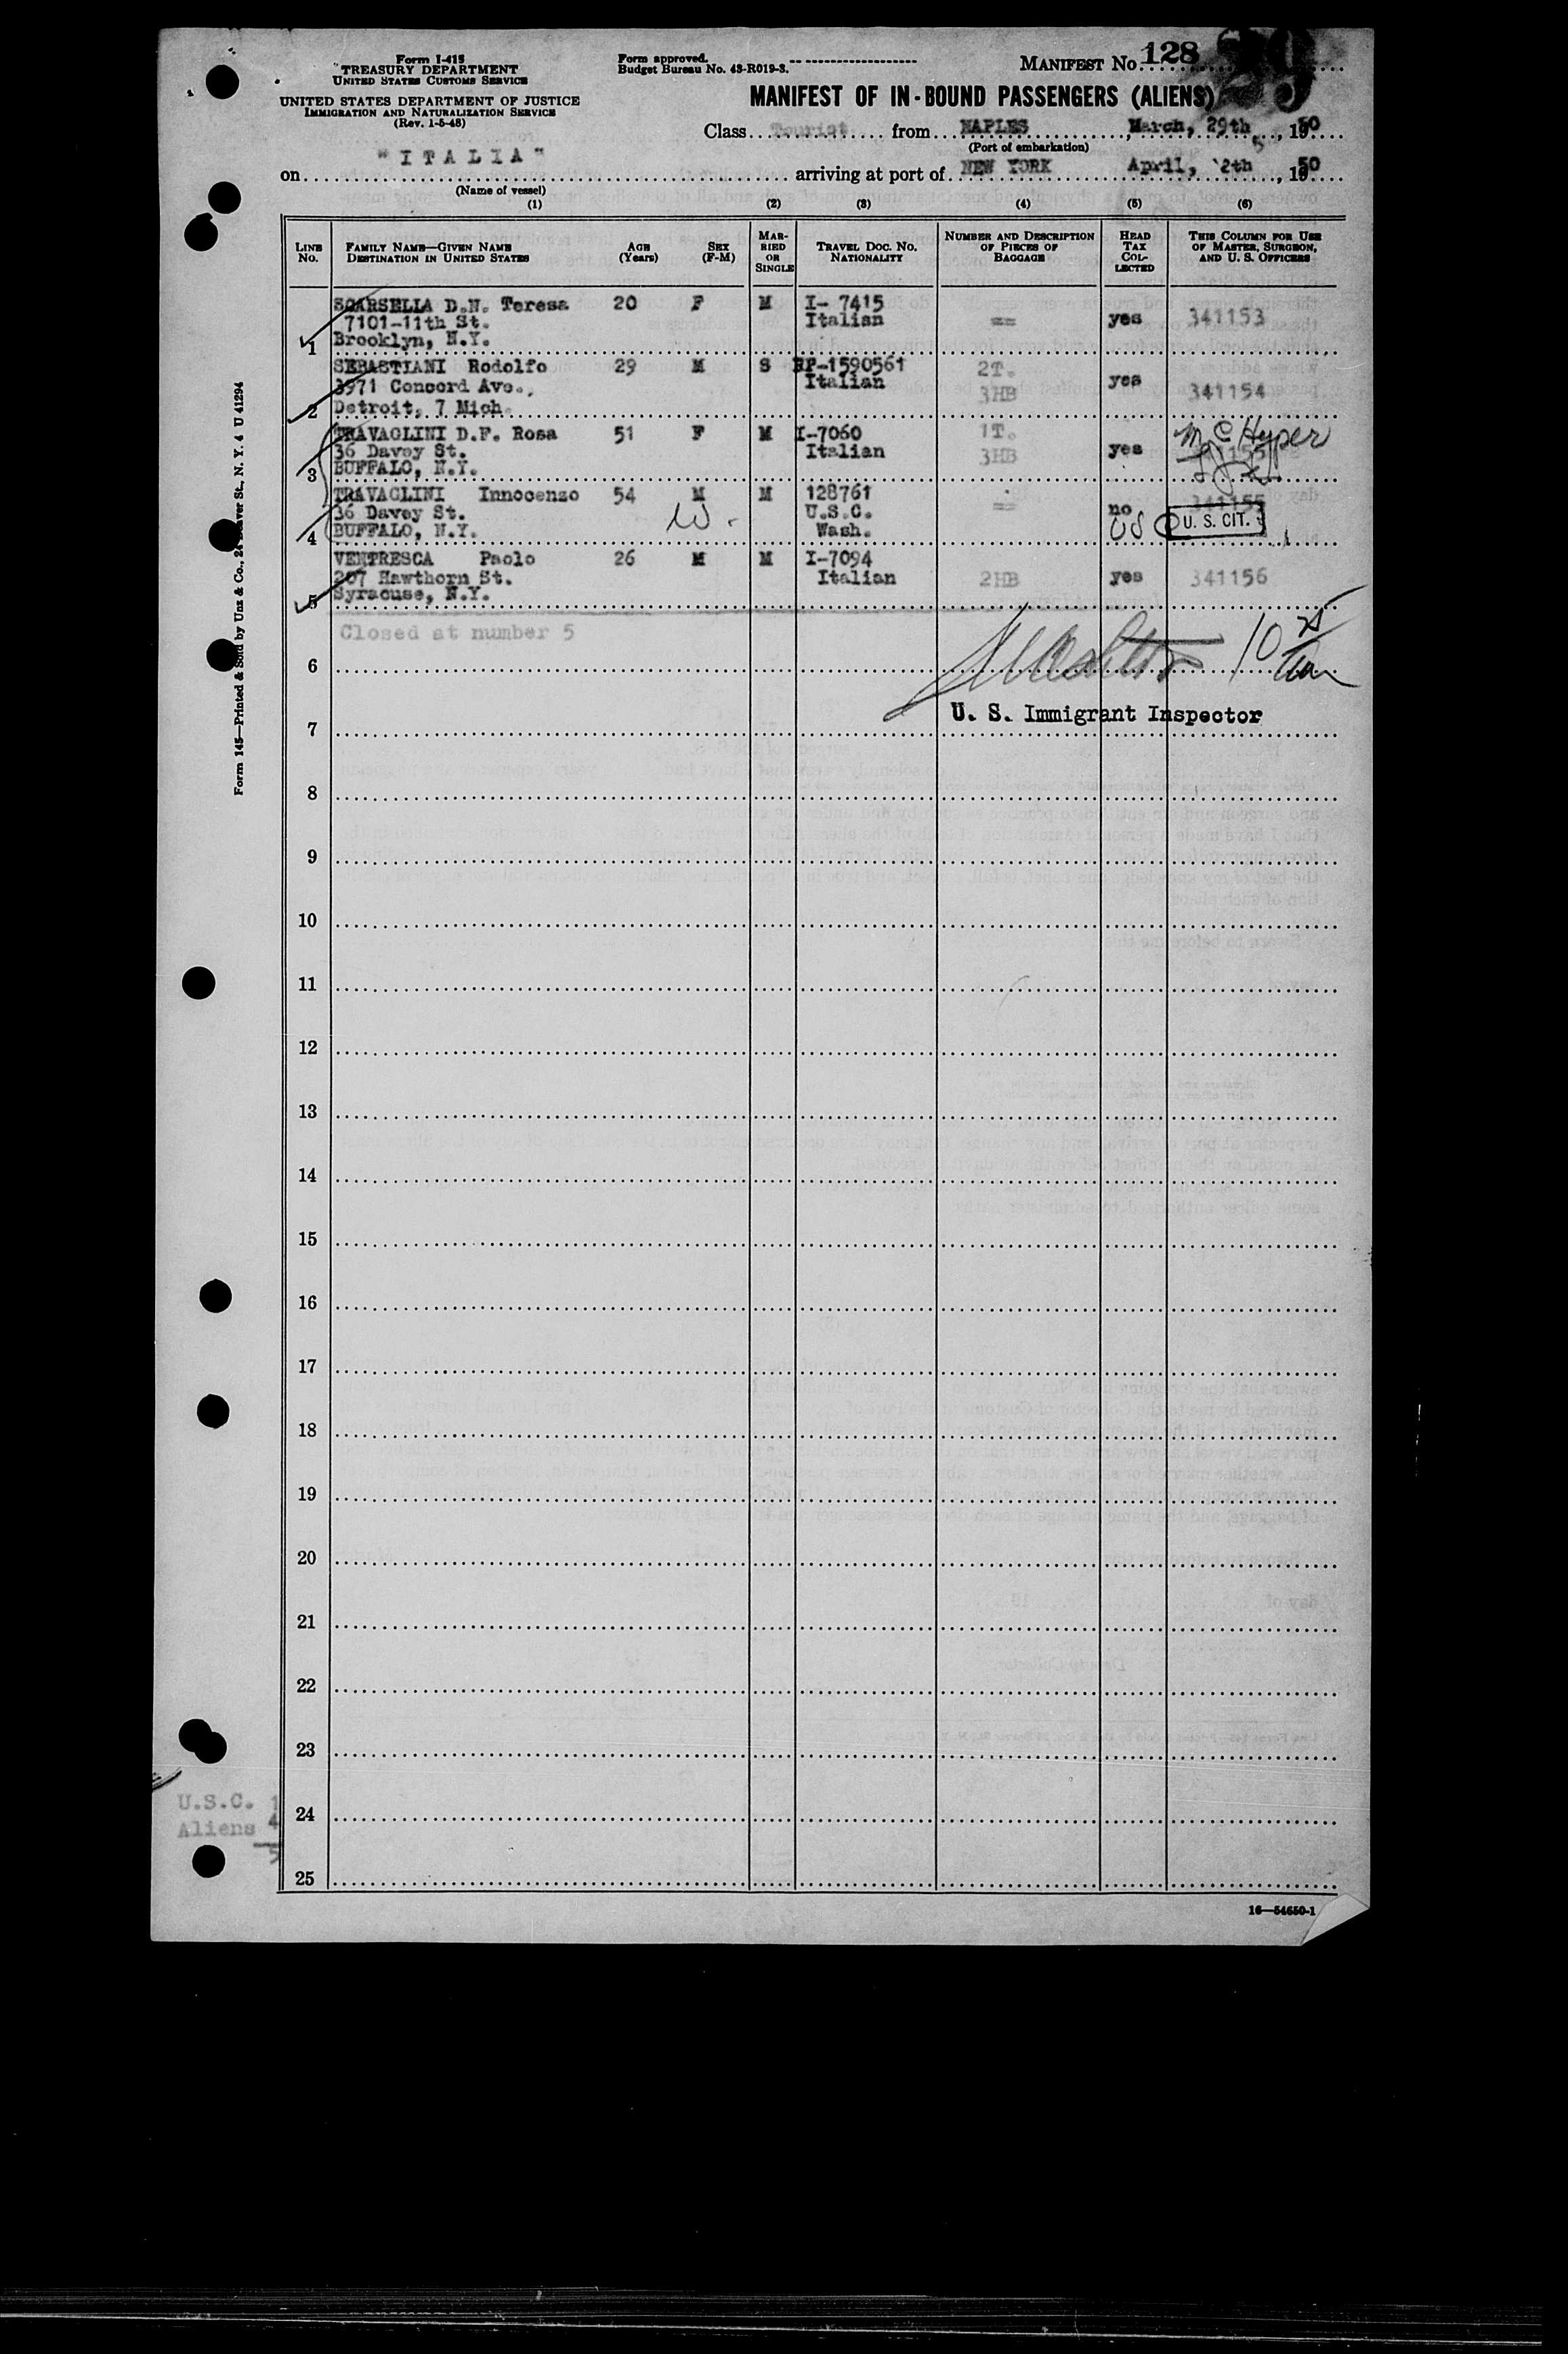 Form I-415
TREASURY DEPARTMENT
UNITED STATES CUSTOMS SERVICE
UNITED STATES DEPARTMENT OF JUSTICE
IMMIGRATION AND NATURALIZATION SERVICE
(Rev. 1-5-48)
Form approved.
Budget Bureau No. 43-R019-3.
MANIFEST No. 128
MANIFEST OF IN-BOUND PASSENGERS (ALIENS)
Class Tourist from NAPLES, March, 29th, 1950
(Port of embarkation)
on "ITALIA" arriving at port of NEW YORK April, 2th, 1950
(Name of vessel)
(1) (2) (3) (4) (5) (6)
LINE No. FAMILY NAME—GIVEN NAME DESTINATION IN UNITED STATES AGE (Years) SEX (F-M) MARRIED OR SINGLE TRAVEL DOC. NO. NATIONALITY NUMBER AND DESCRIPTION OF PIECES OF BAGGAGE HEAD TAX COLLECTED THIS COLUMN FOR USE OF MASTER, SURGEON, AND U. S. OFFICERS
SCARSELLA D.N. Teresa 20 F M I- 7415
7101-11th St. Italian == yes 341153
1 Brooklyn, N.Y.
SEBASTIANI Rodolfo 29 M S RP-1590561 2T.
3971 Concord Ave., Italian 3HB yes 341154
2 Detroit, 7 Mich.
TRAVAGLINI D.F. Rosa 51 F M I-7060 1T.
36 Davey St. Italian 3HB yes
3 BUFFALO, N.Y.
TRAVAGLINI Innocenzo 54 M M 128761
36 Davey St. U.S.C. == no 341155
4 BUFFALO, N.Y. Wash. U. S. CIT.
VENTRESCA Paolo 26 M M I-7094
207 Hawthorn St. Italian 2HB yes 341156
5 Syracuse, N.Y.
Closed at number 5
6
U. S. Immigrant Inspector
7
8
9
10
11
12
13
14
15
16
17
18
19
20
21
22
23
24
25
U.S.C. 1
Aliens 4
5
16—54650-1
Form 145—Printed & Sold by Unz & Co., 24 Beaver St., N. Y. 4 U 41294